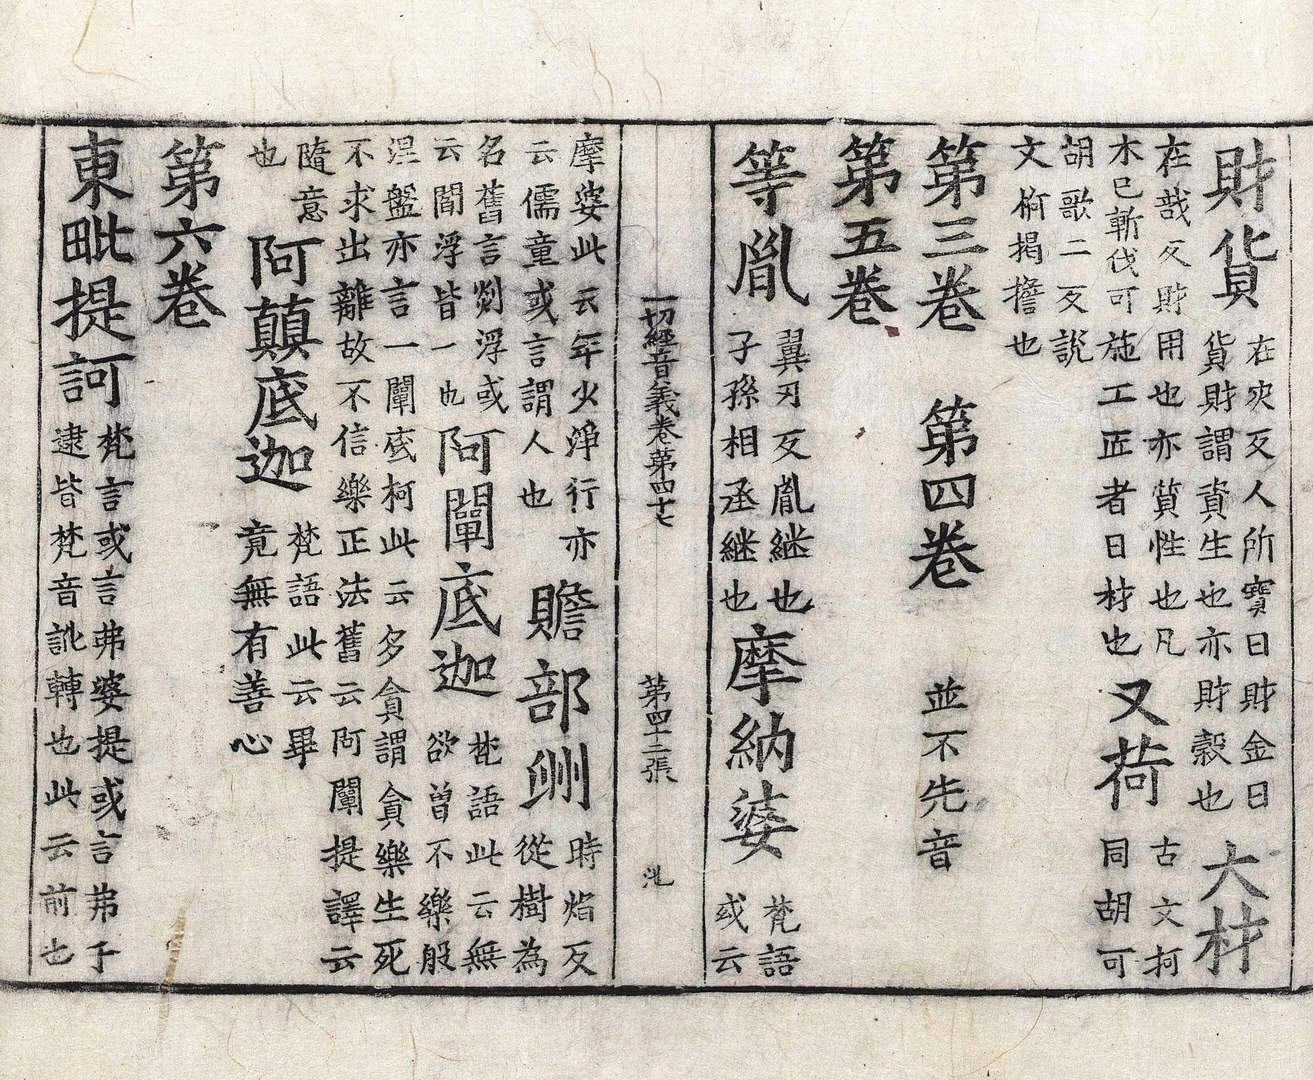 財貨在灾反人所寶曰財金曰
貨財謂資生也亦財穀也大材
在哉反財用也亦質性也凡
木已斬伐可施工匠者曰材也又荷古文柯
同胡可
胡歌二反說
文柯揭擔也
第三卷　第四卷　並不先音
第五卷
等胤翼刃反胤継也
子孫相丞継也摩納婆梵語
或云
一切經音義卷第四十七　第四十二張
摩婆此云年少淨行亦
云儒童或言謂人也贍部洲時焰反
從樹為
名舊言剡浮或
云閻浮皆一也阿闡底迦梵語此云無
欲曾不樂般
涅盤亦言一闡底柯此云多貪謂貪樂生死
不求出離故不信樂正法舊云阿闡提譯云
隨意
也阿顛底迦梵語此云畢
竟無有善心
第六卷
東毗提訶梵言或言弗婆提或言弗于
逮皆梵音訛轉也此云前也